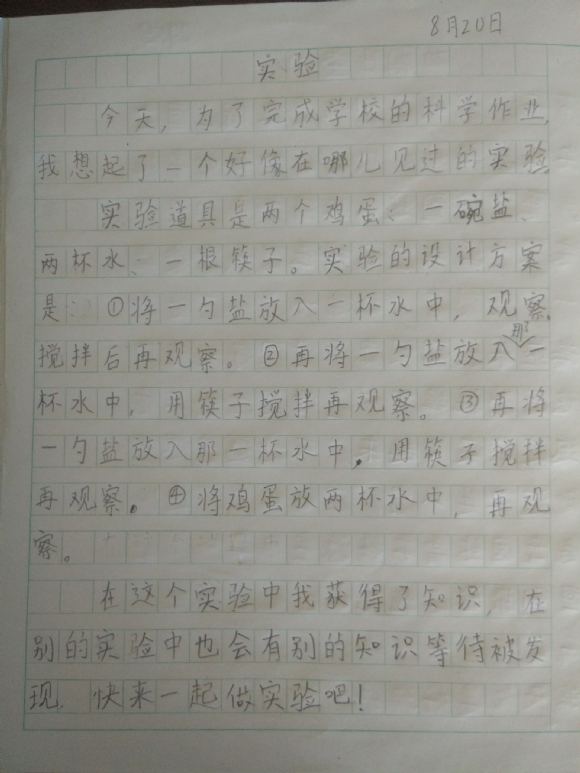 8月20日
实验
今天,为了完成学校的科学作业,
我想起了一个好像在哪儿见过的实验
实验道具是两个鸡蛋、一碗盐、
两杯水、一根筷子。实验的设计方案
是:①将一勺盐放入一杯水中,观察,
搅拌后再观察。②再将一勺盐放入那一
杯水中,用筷子搅拌再观察。③再将
一勺盐放入那一杯水中,用筷子搅拌
再观察。④将鸡蛋放两杯水中,再观
察。
在这个实验中我获得了知识,在
别的实验中也会有别的知识等待被发
现,快来一起做实验吧!